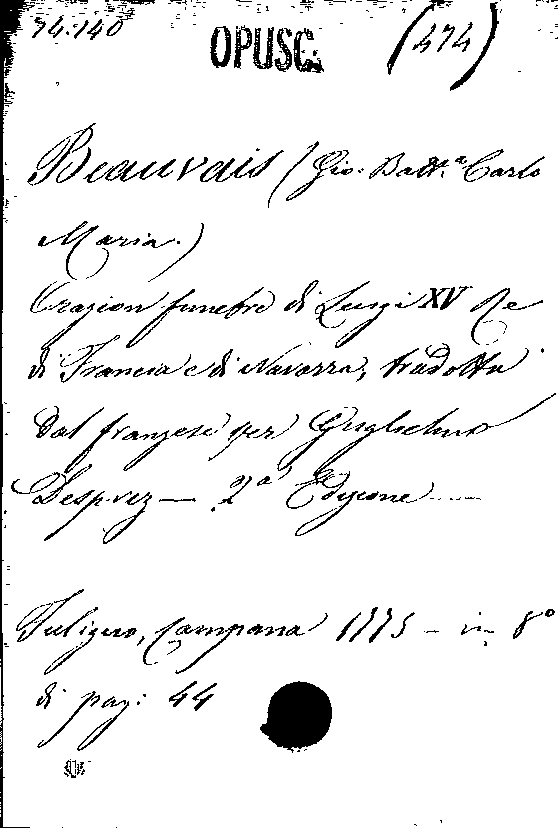 74.140
OPUSC.
(474)
Beauvais (Gio. Batt.a Carlo
Maria.)
Orazion funebre di Luigi XV Re
di Francia e di Navarra, tradotta
dal franzese per Guglielmo
Desprez — 2a Edizione
Fuligno, Campana 1775 - in 8o
di pag: 44